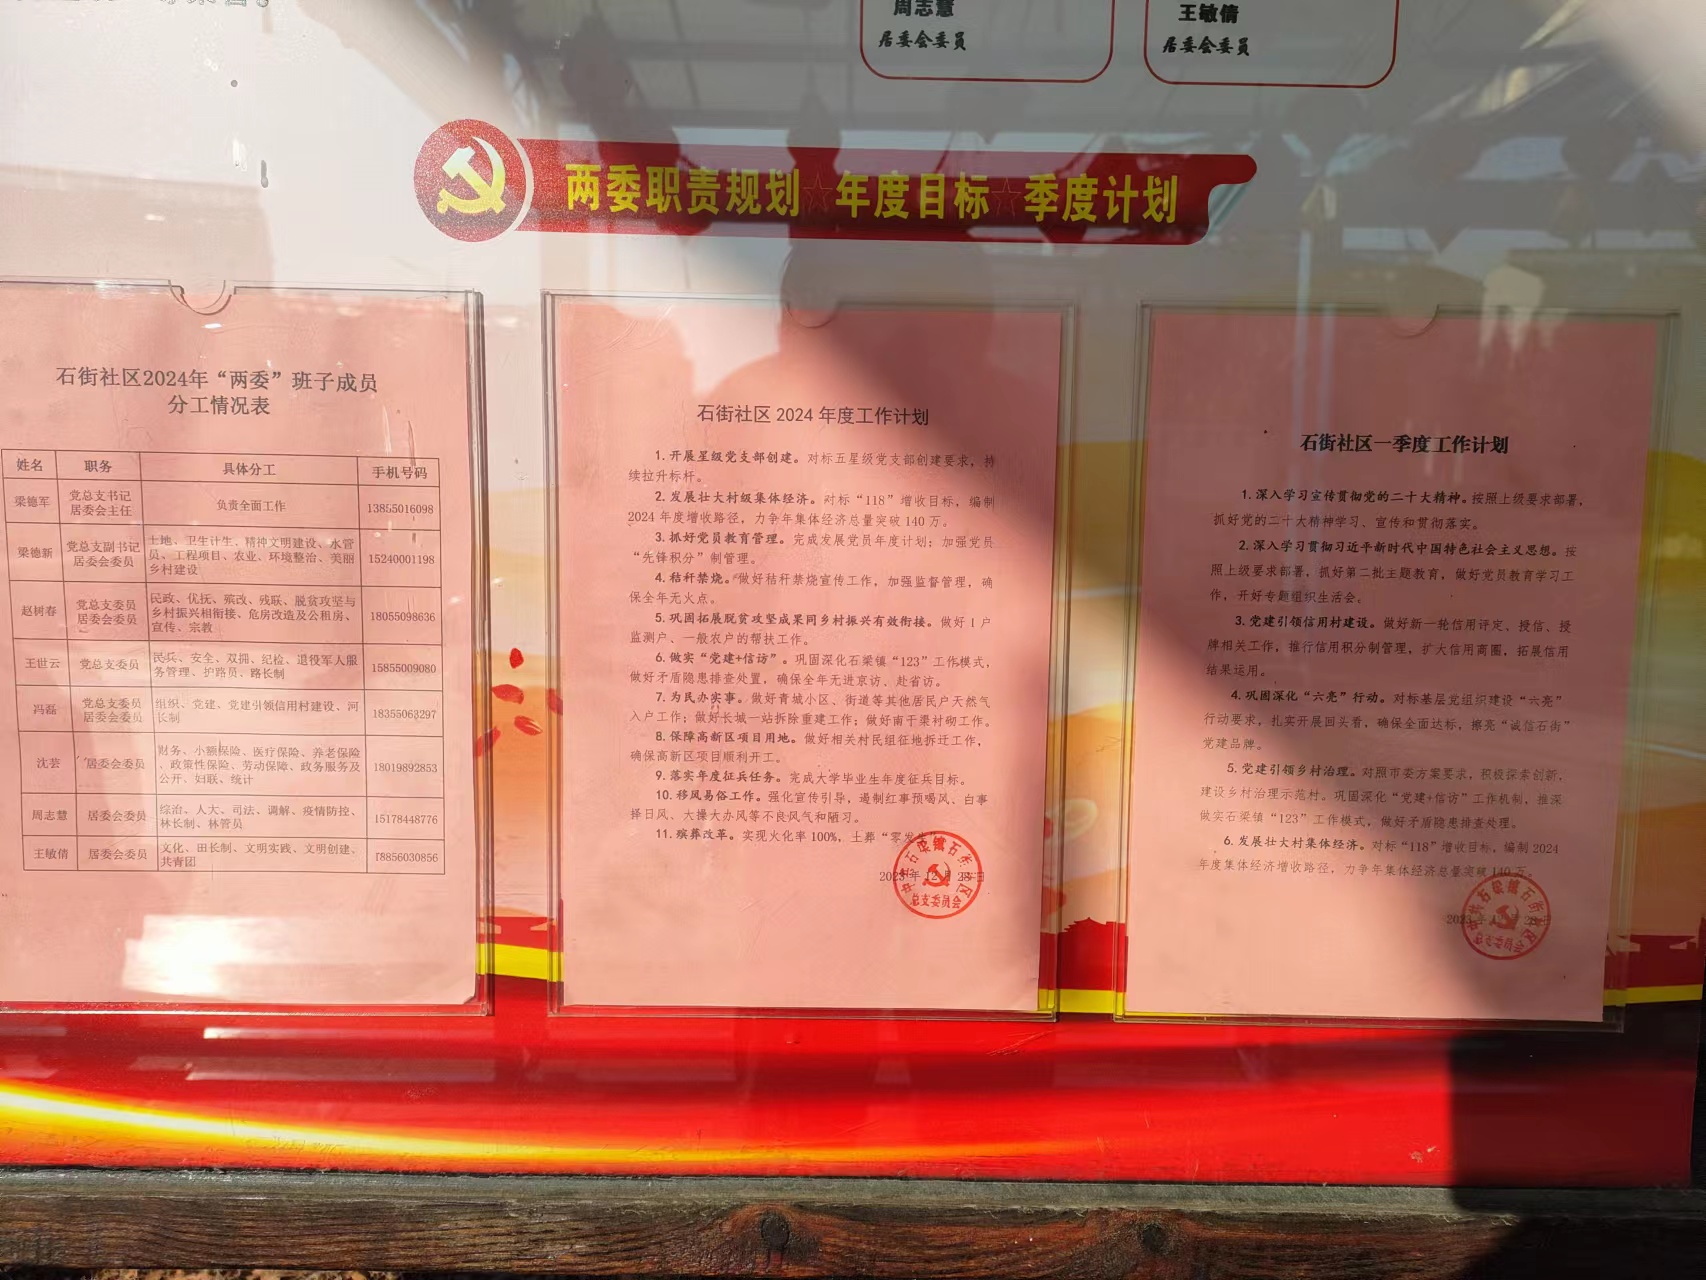 周志慧
居委会委员
王敏倩
居委会委员
两委职责规划☆年度目标☆季度计划
石街社区2024年“两委”班子成员
分工情况表
姓名 职务 具体分工 手机号码
梁德军 党总支书记 居委会主任 负责全面工作 13855016098
梁德新 党总支副书记 居委会委员 土地、卫生计生、精神文明建设、水管员、工程项目、农业、环境整治、美丽乡村建设 15240001198
赵树春 党总支委员 居委会委员 民政、优抚、殡改、残联、脱贫攻坚与乡村振兴相衔接、危房改造及公租房、宣传、宗教 18055098636
王世云 党总支委员 民兵、安全、双拥、纪检、退役军人服务管理、护路员、路长制 15855009080
冯磊 党总支委员 居委会委员 组织、党建、党建引领信用村建设、河长制 18355063297
沈芸 居委会委员 财务、小额保险、医疗保险、养老保险、政策性保险、劳动保障、政务服务及公开、妇联、统计 18019892853
周志慧 居委会委员 综治、人大、司法、调解、疫情防控、林长制、林管员 15178448776
王敏倩 居委会委员 文化、田长制、文明实践、文明创建、共青团 18856030856
石街社区 2024 年度工作计划
1. 开展星级党支部创建。对标五星级党支部创建要求，持
续拉升标杆。
2. 发展壮大村级集体经济。对标“118”增收目标，编制
2024 年度增收路径，力争年集体经济总量突破 140 万。
3. 抓好党员教育管理。完成发展党员年度计划；加强党员
“先锋积分”制管理。
4. 秸秆禁烧。做好秸秆禁烧宣传工作，加强监督管理，确
保全年无火点。
5. 巩固拓展脱贫攻坚成果同乡村振兴有效衔接。做好 1 户
监测户、一般农户的帮扶工作。
6. 做实“党建+信访”。巩固深化石梁镇“123”工作模式，
做好矛盾隐患排查处置，确保全年无进京访、赴省访。
7. 为民办实事。做好青城小区、街道等其他居民户天然气
入户工作；做好长城一站拆除重建工作；做好南干渠衬砌工作。
8. 保障高新区项目用地。做好相关村民组征地拆迁工作，
确保高新区项目顺利开工。
9. 落实年度征兵任务。完成大学毕业生年度征兵目标。
10. 移风易俗工作。强化宣传引导，遏制红事预喝风、白事
择日风、大操大办风等不良风气和陋习。
11. 殡葬改革。实现火化率 100%，土葬“零发生”
2023 年 12 月 28 日
中共石梁镇石街社区
总支委员会
石街社区一季度工作计划
1. 深入学习宣传贯彻党的二十大精神。按照上级要求部署，
抓好党的二十大精神学习、宣传和贯彻落实。
2. 深入学习贯彻习近平新时代中国特色社会主义思想。按
照上级要求部署，抓好第二批主题教育，做好党员教育学习工
作，开好专题组织生活会。
3. 党建引领信用村建设。做好新一轮信用评定、授信、授
牌相关工作，推行信用积分制管理，扩大信用商圈，拓展信用
结果运用。
4. 巩固深化“六亮”行动。对标基层党组织建设“六亮”
行动要求，扎实开展回头看，确保全面达标，擦亮“诚信石街”
党建品牌。
5. 党建引领乡村治理。对照市委方案要求，积极探索创新，
建设乡村治理示范村。巩固深化“党建+信访”工作机制，推深
做实石梁镇“123”工作模式，做好矛盾隐患排查处理。
6. 发展壮大村集体经济。对标“118”增收目标，编制 2024
年度集体经济增收路径，力争年集体经济总量突破 140 万。
中共石梁镇石街社区
总支委员会